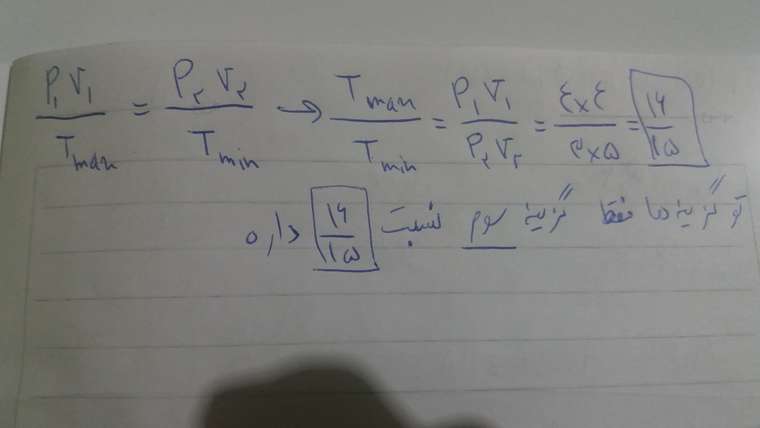 P₁V₁ / T max = P₂V₂ / T min → T max / T min = P₁V₁ / P₂V₂ = ۴×۴ / ۳×۵ = ۱۶ / ۱۵
تو گزینه ها فقط گزینه سوم نسبت ۱۶ / ۱۵ داره